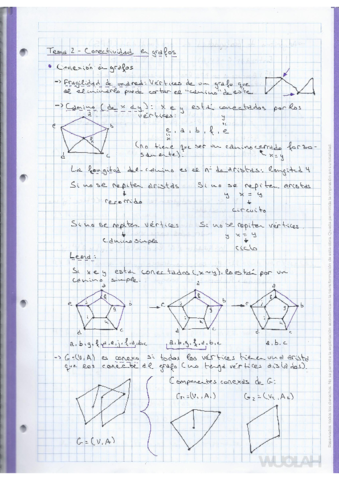 Tema 2 - Conectividad en grafos
• Conexión en grafos
→ Fragilidad de una red: Vértices de un grafo que
al eliminarlo puede cortar el "camino" de este
→ Camino [de x e y]: x e y está conectadas por los
vértices:
a
e b
d c
x y
e, a, b, f, e
(no tiene que ser un camino cerrado forzo-
samente).
x = y
La longitud del camino es el nº de aristas. Longitud 4
Si no se repiten aristas Si no se repiten aristas
y x = y
recorrido circuito
Si no se repiten vértices Si no se repiten vértices
y x = y
camino simple ciclo
Lema:
Si x e y están conectados (x≠y), lo están por un
camino simple.
a, b, g, f, d, b, c a, b, c
→ G=(V,A) es conexo si todos los vértices tienen una arista
que los conecte al grafo (no tenga vértices aislados).
Componentes conexas de G:
G₁=(V₁,A₁) G₂=(V₂,A₂)
G=(V,A)
WUOLAH